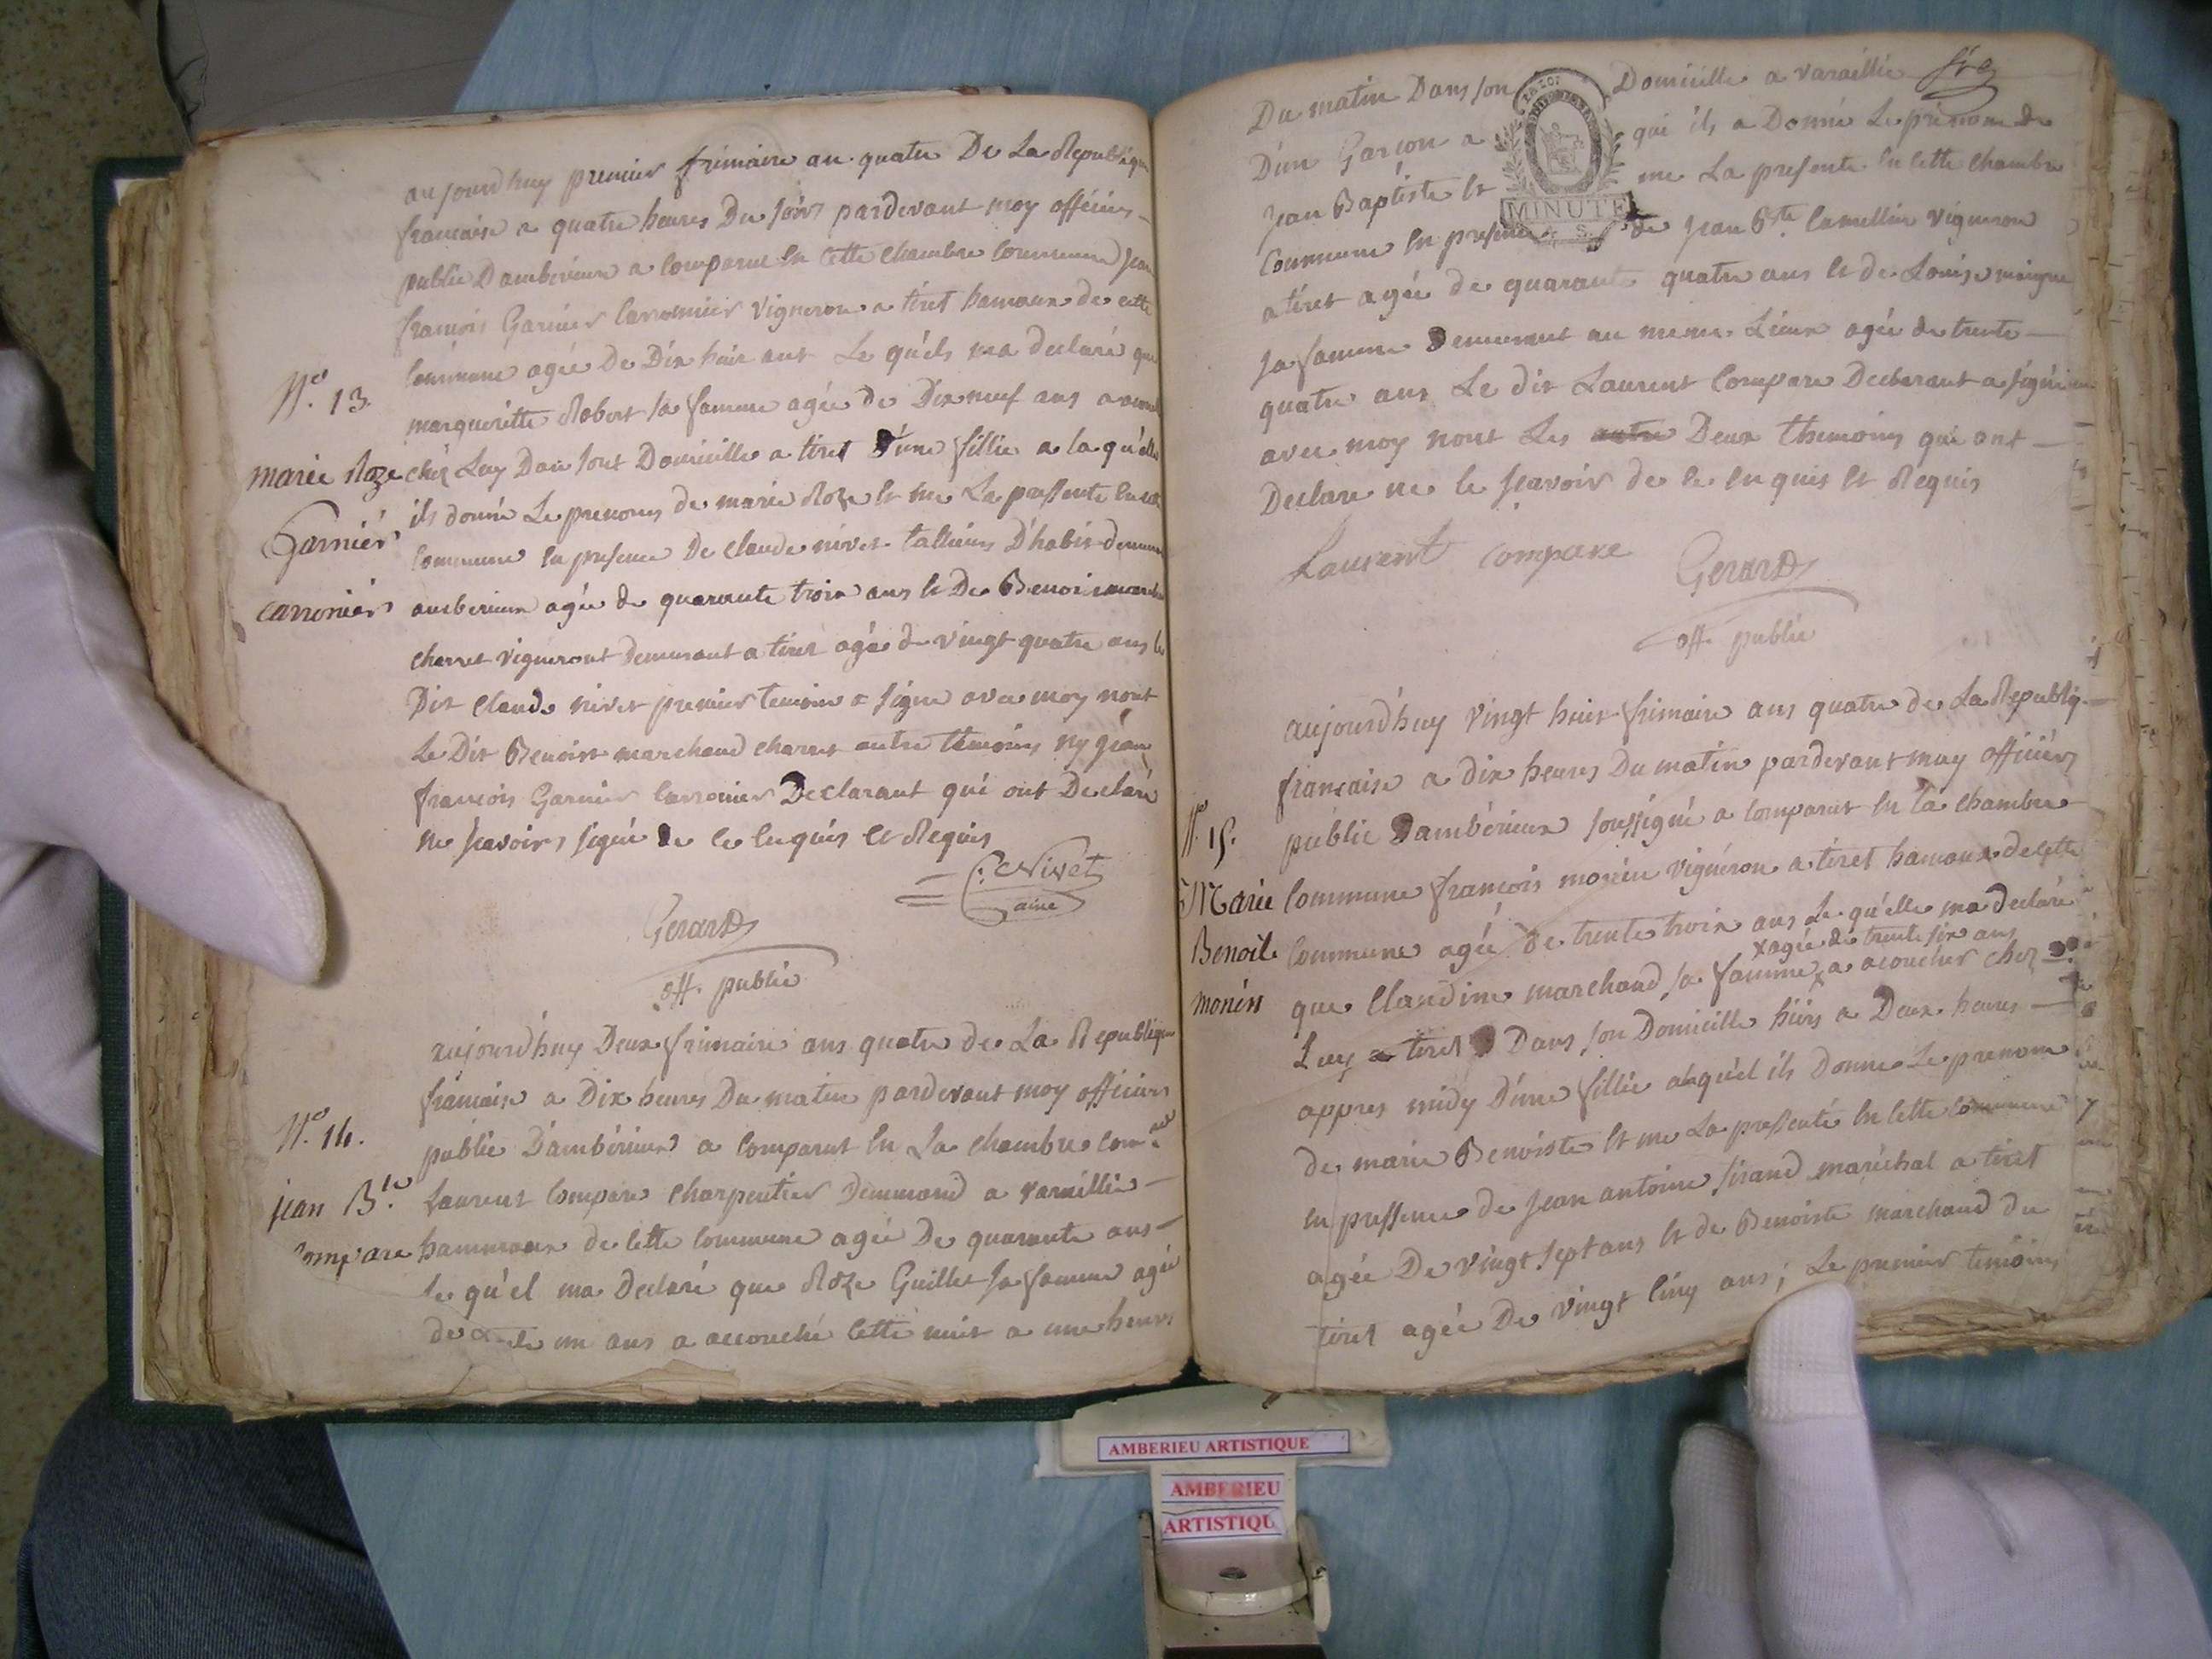 aujourdhuy premier frimaire an quatre De La Republique
francaise a quatre heures Du soirs pardevant moy officiers
public Damberieux a comparut en cette chambre commune jean
francois Garnier carronnier vigneron a tiret hamaux de cette
commune agée de Dix huit ans Le qu'els ma declaré que
N.o 13.
margueritte Robert sa famme agée de Dix neuf ans
marie Roze
Garniér
carroniér
chéz Luy Dan sont Domicille a tiret D'ùne fillie a la qu'elle
ils donné Le prenoms de marie Roze et me La pressente en
commune en presence De claude nivet tallieurs D'habit
amberieux agée de quarante troix ans et De Benoit
charvet vigneront demeurant a tiret agée de vingt quatre ans Le
Dit claude nivet premier temoins a signe avec moy nont
Le Dit Benoist marchand charvet autre témoins ny jean
francois Garnier carronier Declarant qui ont Declaré
ne scavoirs signé de ce enquis et Requis
C. Nivet
ainé
Gerard
off. public
aujourd'huy Deux frimaire ans quatre de La Republique
francaise a Dix heures Du matin pardevant moy officiers
N.o 14.
public D'ambérieux a comparut en La chambre com.ne
jean B.te
compare
Laurent compare charpentier Demmorand a varaillie
hammaux de cette commune agée De quarante ans
le qu'el ma declaré que Roze Guillet sa famme agée
de un ans a accouché cette nuit a une heurs
Du matin Dans son Domicille a varaillie
D'un Garcon a qui ils a Donné Le prénom de
MINUTE
jean Baptiste et me La presente en cette chambre
commune en presence de jean B.te camellin vigneron
a tiret agée de quarante quatre ans et de Louise
sa famme Demeurant au meme Lieux agée de trente
quatre ans Le dit Laurent compare Declarant a signé
avec moy nont Les autre Deux themoins qui ont
Declare ne le scavoir de ce enquis et Requis
Laurent compare
Gerard
off. public
aujourd'huy vingt huit frimaire ans quatre de La Republiq.
francaise a dix heures Du matin pardevant moy officiérs
N.o 15.
public Dambérieux soussigné a comparut en la chambre
Marie
Benoite
monin
commune francois monin vigneron a tiret hamaux de cette
commune agée de trente troix ans Le qu'elle ma declaré
x agée de trente six ans
que Claudine marchand sa famme x a acoucher chez
Luy a tiret Dans son Domicille hiérs a Deux heures
appres midy D'ùne fillie a qu'el ils Donne Le prenom
de marie Benoiste et me La pressenté en cette commune
en pressence de jean antoine sirand maréchal a tiret
agée De vingt sept ans et de Benoiste marchand du
tiret agée De vingt cinq ans; Le premier temoins
AMBERIEU ARTISTIQUE
AMBERIEU
ARTISTIQU